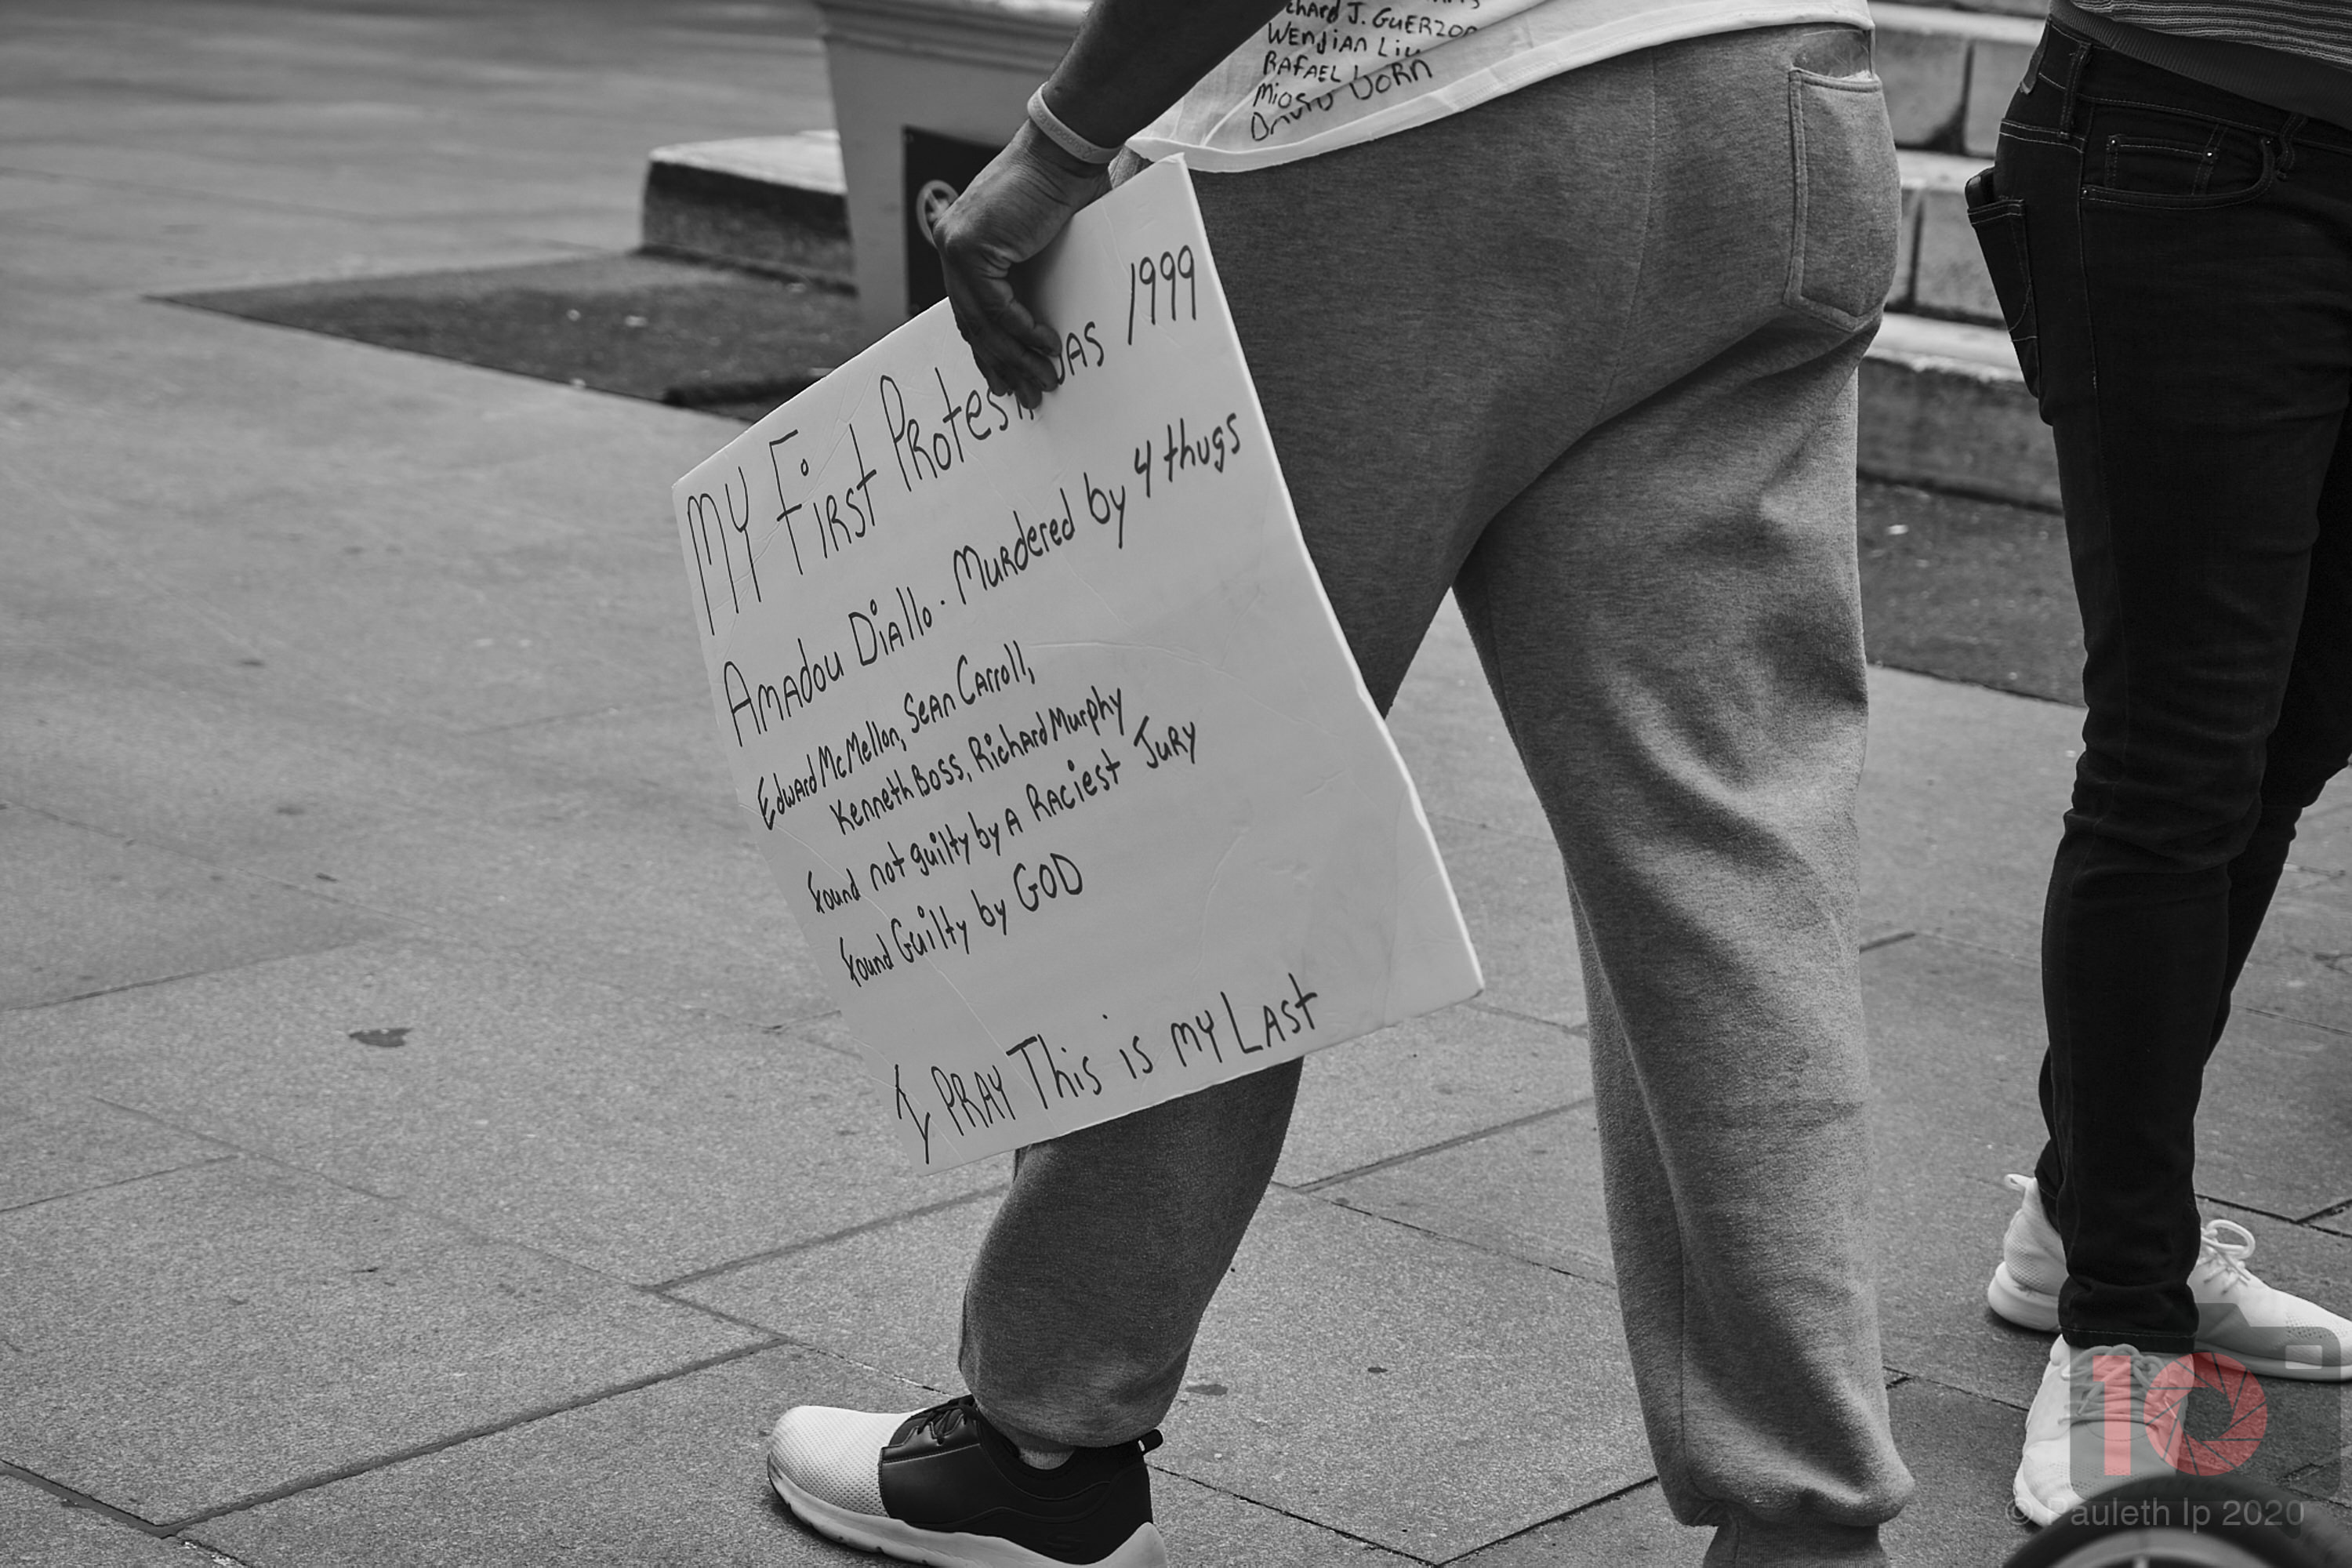 J. GUERZON
WENJIAN Liu
RAFAEL
DORN
MY First Protest was 1999
Amadou Diallo. Murdered by 4 thugs
Edward McMellon, Sean Carroll,
Kenneth Boss, Richard Murphy
found not guilty by A Raciest Jury
found Guilty by GOD
I PRAY This is my LAst
10
© Pauleth Ip 2020